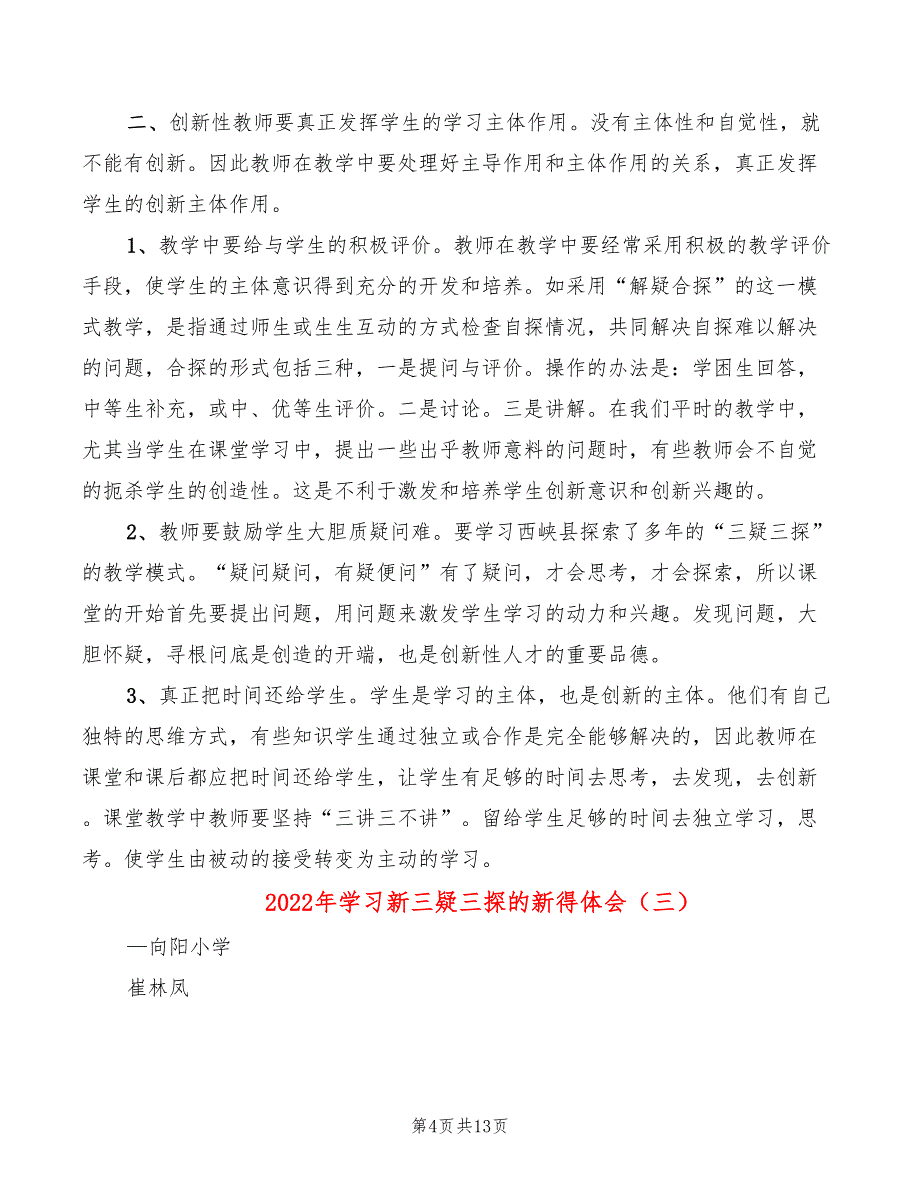 二、创新性教师要真正发挥学生的学习主体作用。没有主体性和自觉性，就
不能有创新。因此教师在教学中要处理好主导作用和主体作用的关系，真正发挥
学生的创新主体作用。
1、教学中要给与学生的积极评价。教师在教学中要经常采用积极的教学评价
手段，使学生的主体意识得到充分的开发和培养。如采用“解疑合探”的这一模
式教学，是指通过师生或生生互动的方式检查自探情况，共同解决自探难以解决
的问题，合探的形式包括三种，一是提问与评价。操作的办法是：学困生回答，
中等生补充，或中、优等生评价。二是讨论。三是讲解。在我们平时的教学中，
尤其当学生在课堂学习中，提出一些出乎教师意料的问题时，有些教师会不自觉
的扼杀学生的创造性。这是不利于激发和培养学生创新意识和创新兴趣的。
2、教师要鼓励学生大胆质疑问难。要学习西峡县探索了多年的“三疑三探”
的教学模式。“疑问疑问，有疑便问”有了疑问，才会思考，才会探索，所以课
堂的开始首先要提出问题，用问题来激发学生学习的动力和兴趣。发现问题，大
胆怀疑，寻根问底是创造的开端，也是创新性人才的重要品德。
3、真正把时间还给学生。学生是学习的主体，也是创新的主体。他们有自己
独特的思维方式，有些知识学生通过独立或合作是完全能够解决的，因此教师在
课堂和课后都应把时间还给学生，让学生有足够的时间去思考，去发现，去创新
。课堂教学中教师要坚持“三讲三不讲”。留给学生足够的时间去独立学习，思
考。使学生由被动的接受转变为主动的学习。
2022年学习新三疑三探的新得体会（三）
—向阳小学
崔林凤
第4页共13页